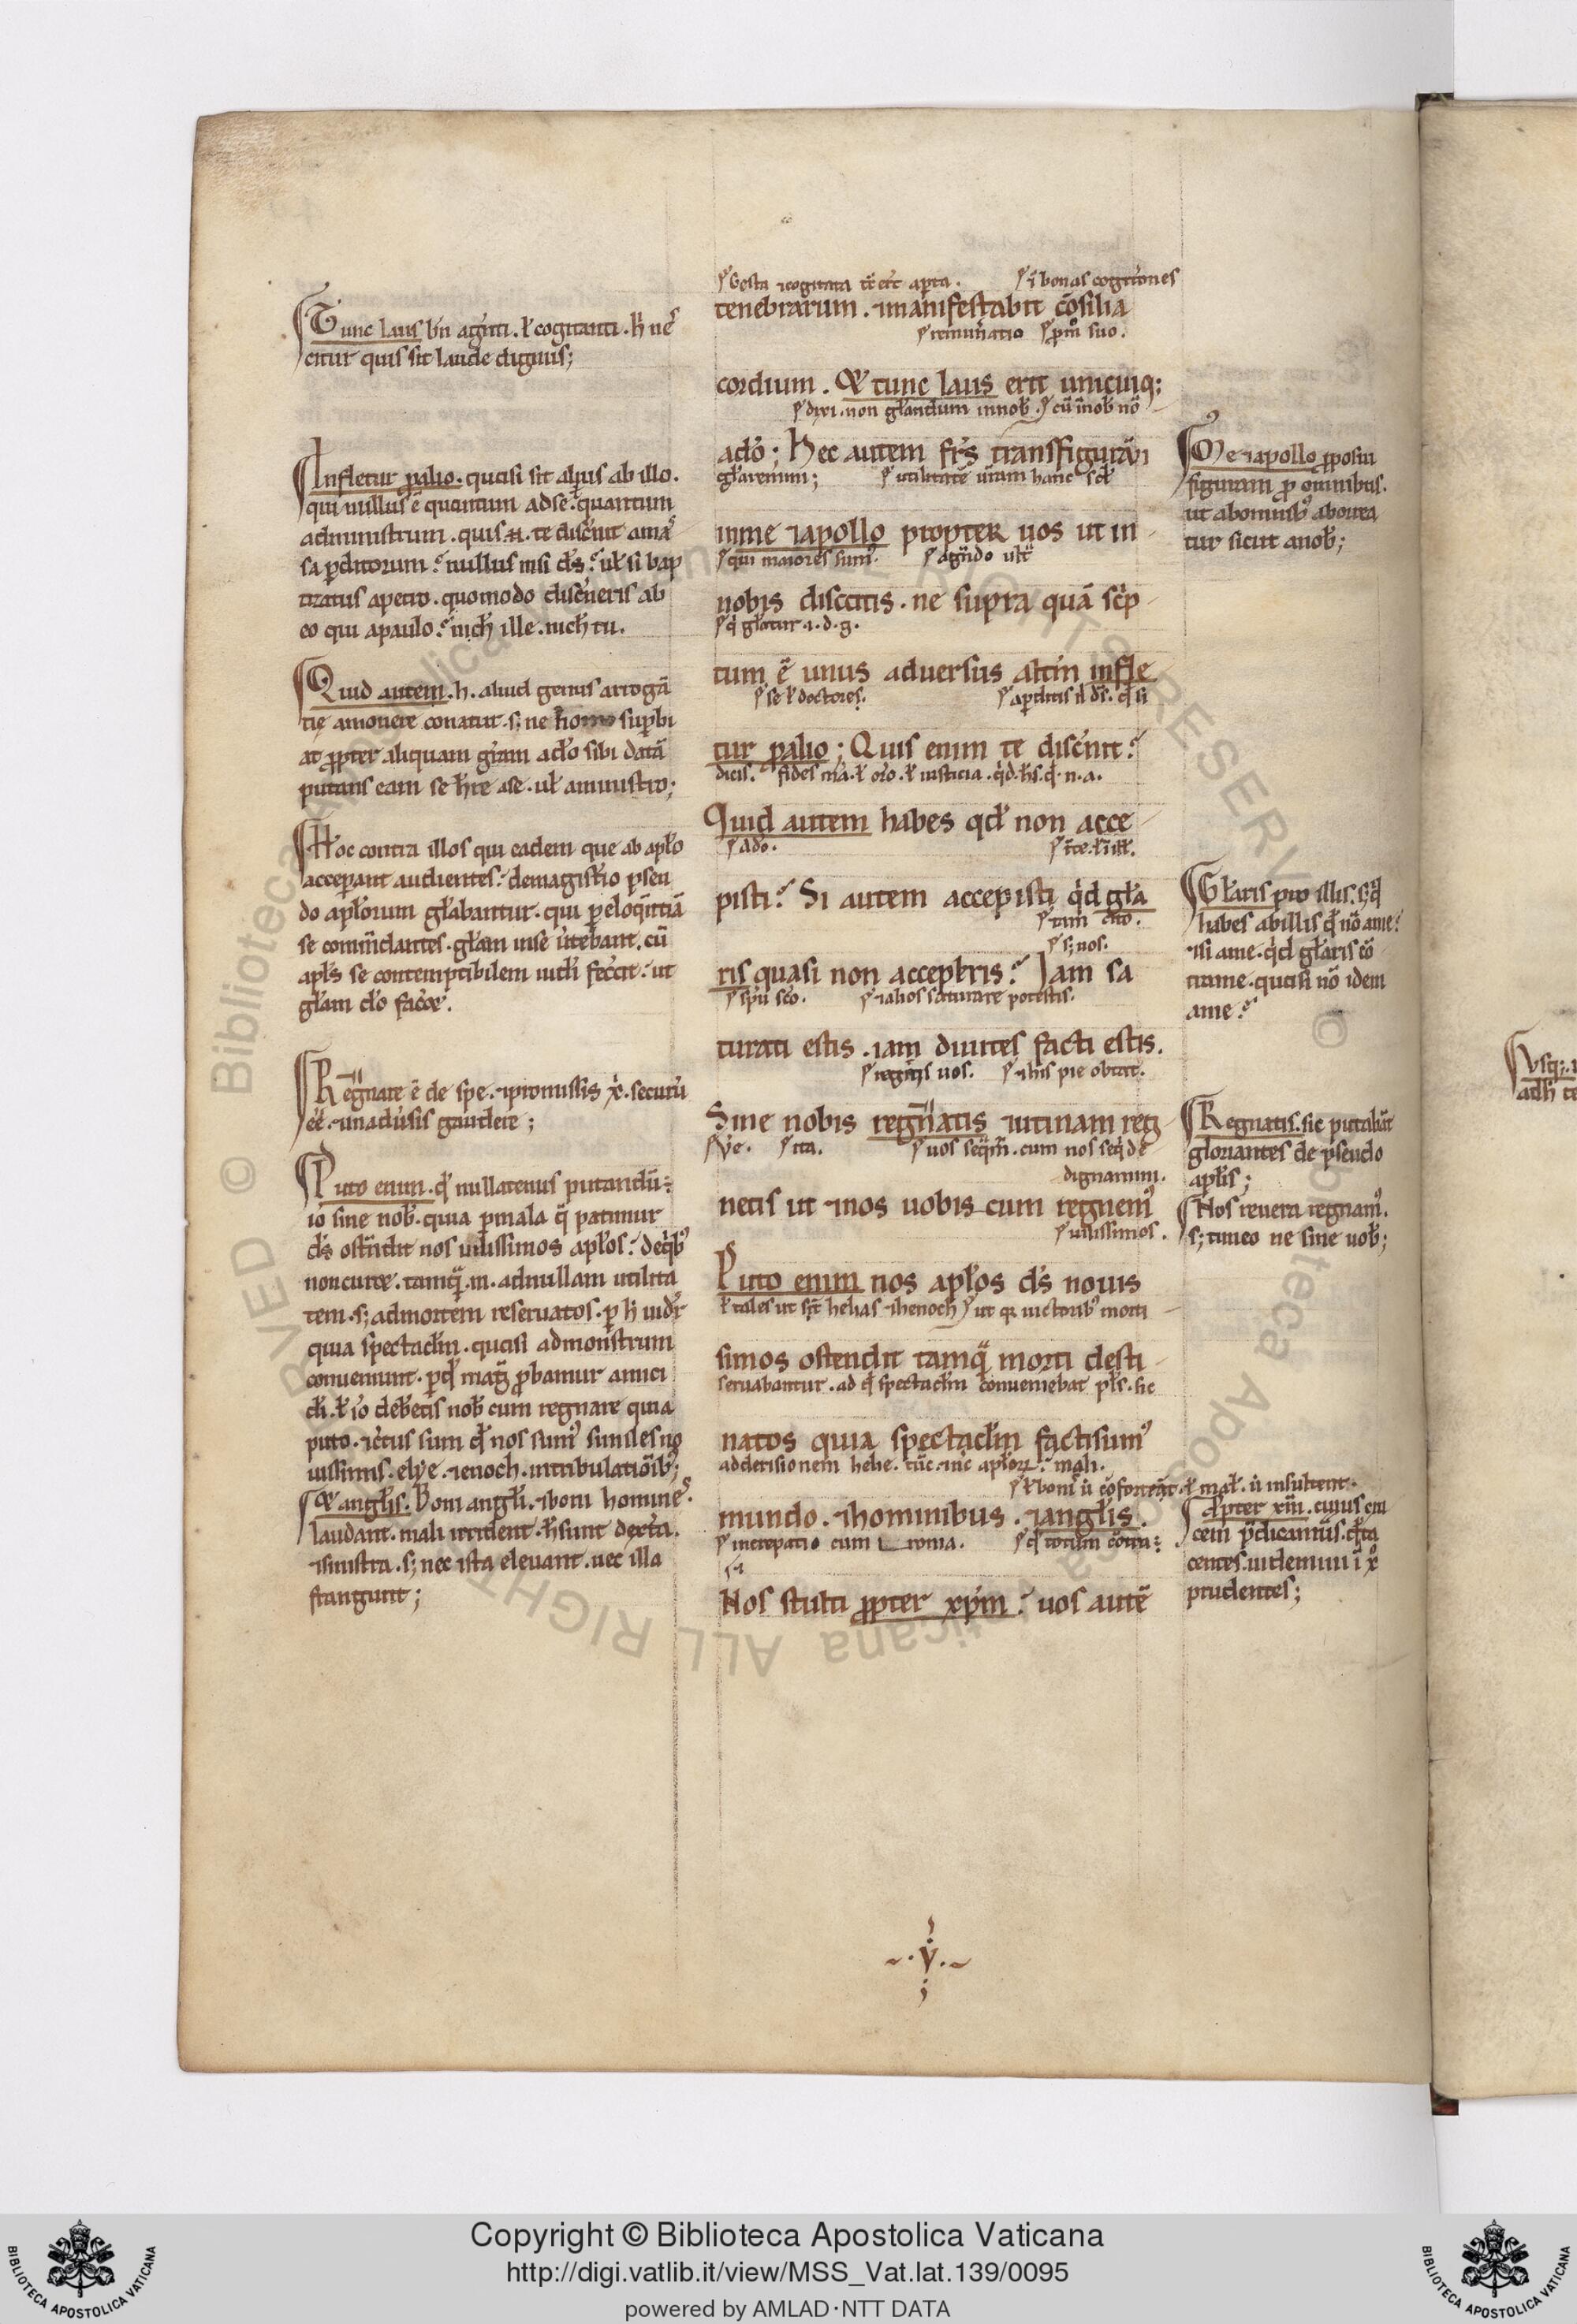 Tunc laus bn̄ agenti. ł cogitanti. h̄ nes
citur quis sit laude dignus;
Infletur ꝓ alio. quasi sit alius ab illo.
qui nullus ē quantum ad se. quantum
ad ministrum. quis .n. te discernit a mas
sa ꝑditorum? nullus nisi ds̄? ul̄ si bap
tizatus a petro. quomodo discerneris ab
eo qui a paulo? nich̄ ille. nich̄ tu.
Quid autem. h. aliud genus arrogā
tię amouere conatur. s; ne homo superbi
at ꝓpter aliquam grām a dō sibi datā
putans eam se hr̄e a se. ul̄ a ministro;
Hoc contra illos qui eadem que ab apło
acceperant audientes? de magisterio pseu
do apłorum głabantur. qui ꝑ eloquentiā
se com̄dantes. głam in se uertebant. cū
apłs se contemptibilem mundi fecerit? ut
głam dō faceret.
Regnare ē de spe. ⁊ promissis xp̄i. securū
ēē. ⁊ in aduersis gaudere;
Puto enim. q̄ nullatenus putandū:
iō sine nob̄. quia ꝑ mala q̄ patimur
ds̄ ostendit nos uilissimos apłos? de quibꝰ
non curet. tamq̄ .m. ad nullam utilita
tem. s; ad mortem reseruatos. ꝑ h̄ uidetur
quia spectaculum. quasi ad monstrum
conueniunt. ꝑ qd̄ mag̃ ꝓbamur amici
dī. ł iō debetis nob̄ cum regnare quia
puto. ⁊ certus sum qd̄ nos sumꝰ similes no
uissimis. elye. ⁊ enoch. in tribulationibꝰ;
Et angłis. Boni angłi. ⁊ boni homines.
laudant. mali irrident. h̄ sunt dextera.
⁊ sinistra. s; nec ista eleuant. nec illa
frangunt;
gesta ⁊ cogitata tc̄ erūt aperta. ⁊ bonas cogitationes
tenebrarum. ⁊ manifestabit cōsilia
remuneratio ꝓ m̄o suo.
cordium. Et tunc laus erit unicuiq;
dixi. non głandum in nob̄. cū in nob̄ nō
a dō; Hec autem fr̄s transfigurāui
głaremini; utilitatē uram hanc scł
in me ⁊ apollo propter uos ut in
qui maiores sumꝰ. agendo ul̄
nobis discatis. ne supra quā scrip
qd̄ głatur. i. d. g.
tum ē unus aduersus altm̄ infle
ꝑ se ł doctores. a perditis n̄ ds̄. qd̄ si
tur ꝓ alio; Quis enim te discernit?
dicis. fides m̄a. ł oro. ł iusticia. qd̄. h̄s. q̄. n. a.
Quid autem habes qd̄ non acce
a dō.
pisti? Si autem accepisti qd̄ gła
tam cito.
s; nos.
ris quasi non acceperis? Iam sa
spū scō. ⁊ alios saturare potestis.
turati estis. iam diuites facti estis.
regnetis uos. ⁊ his pie obtat.
Sine nobis regnatis ⁊ utinam reg
ue. ita. uos sequem̄. cum nos sequi de
dignamini.
netis ut ⁊ nos uobis cum regnemꝰ
uilissimos.
Puto enim nos apłos ds̄ nouis
ł tales ut sr̄t helias ⁊ henoch ut qr uictoribꝰ morti
simos ostendit tamq̄ morti desti
seruabantur. ad qd̄ spectaculum conueniebat pl̄s. sic
natos quia spectaculum facti sumꝰ
ad derisionem helie. tūc. ⁊ nc̄ apłoꝝ. mali.
mundo. ⁊ hominibus. ⁊ angłis.
increpatio cum ironia. qd̄ totum contra:
Nos stulti ꝓpter xpm̄? uos autē
Me ⁊ apollo ꝓposui
figuram ꝓ omnibus.
ut ab omnibꝰ auerta
tur sicut a nob̄;
Głaris pro illis. s; qd̄
habes ab illis qd̄ nō a me?
⁊ si a me. qd̄ głaris cō
tra me. quasi nō idem
a me?
Regnatis. sic putabāt
gloriantes de pseudo
apłis;
Nos reuera regnamꝰ.
s; timeo ne sine uob̄;
ꝓpter xpm̄. cuius cru
cem p̄dicamus. qd̄ ta
centes. uidemini ī xp̄o
prudentes;
.v.
Copyright © Biblioteca Apostolica Vaticana
http://digi.vatlib.it/view/MSS_Vat.lat.139/0095
powered by AMLAD·NTT DATA
BIBLIOTECA APOSTOLICA VATICANA
BIBLIOTECA APOSTOLICA VATICANA